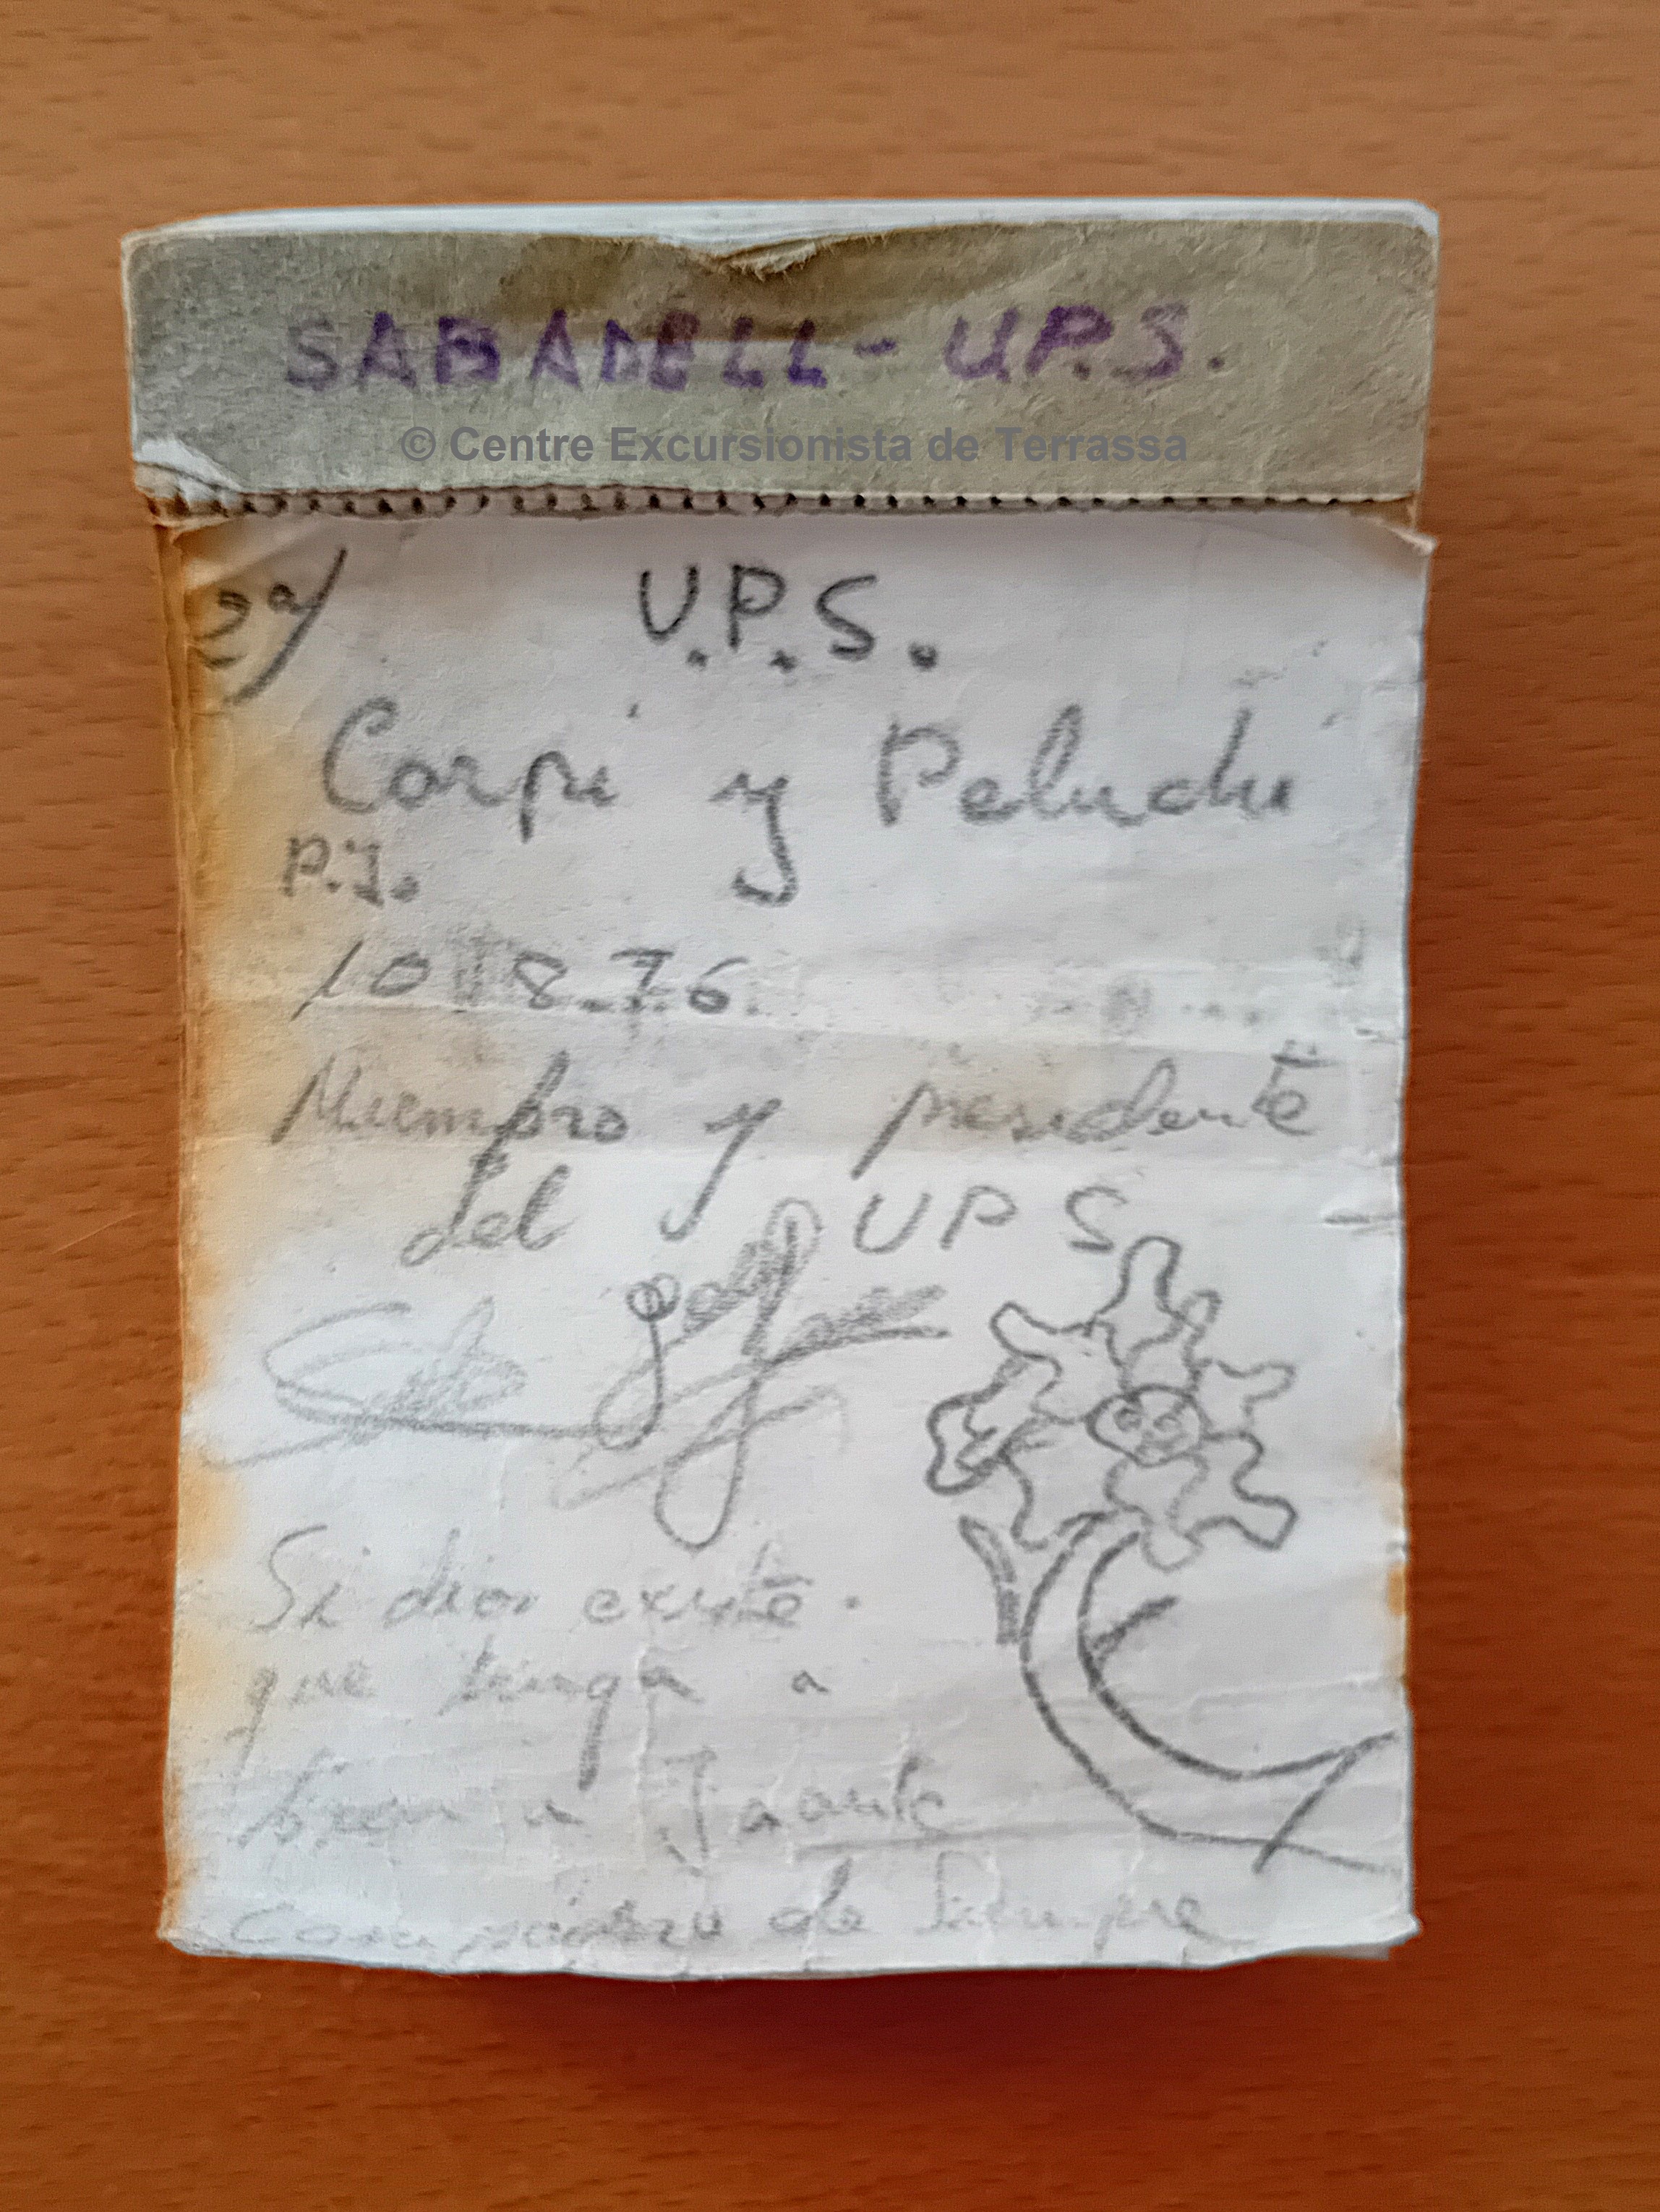 SABADELL - U.P.S.
© Centre Excursionista de Terrassa
U.P.S.
Corpi y Peludi
P.J.
10 8.76
Miembro y presidente
del UPS
Si dios existe.
que tenga a
bien a
Compañero de Siempre